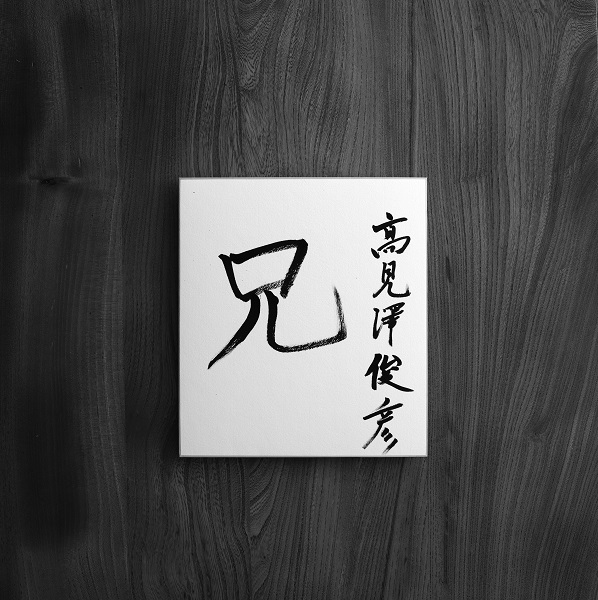 高見澤俊彦
兄